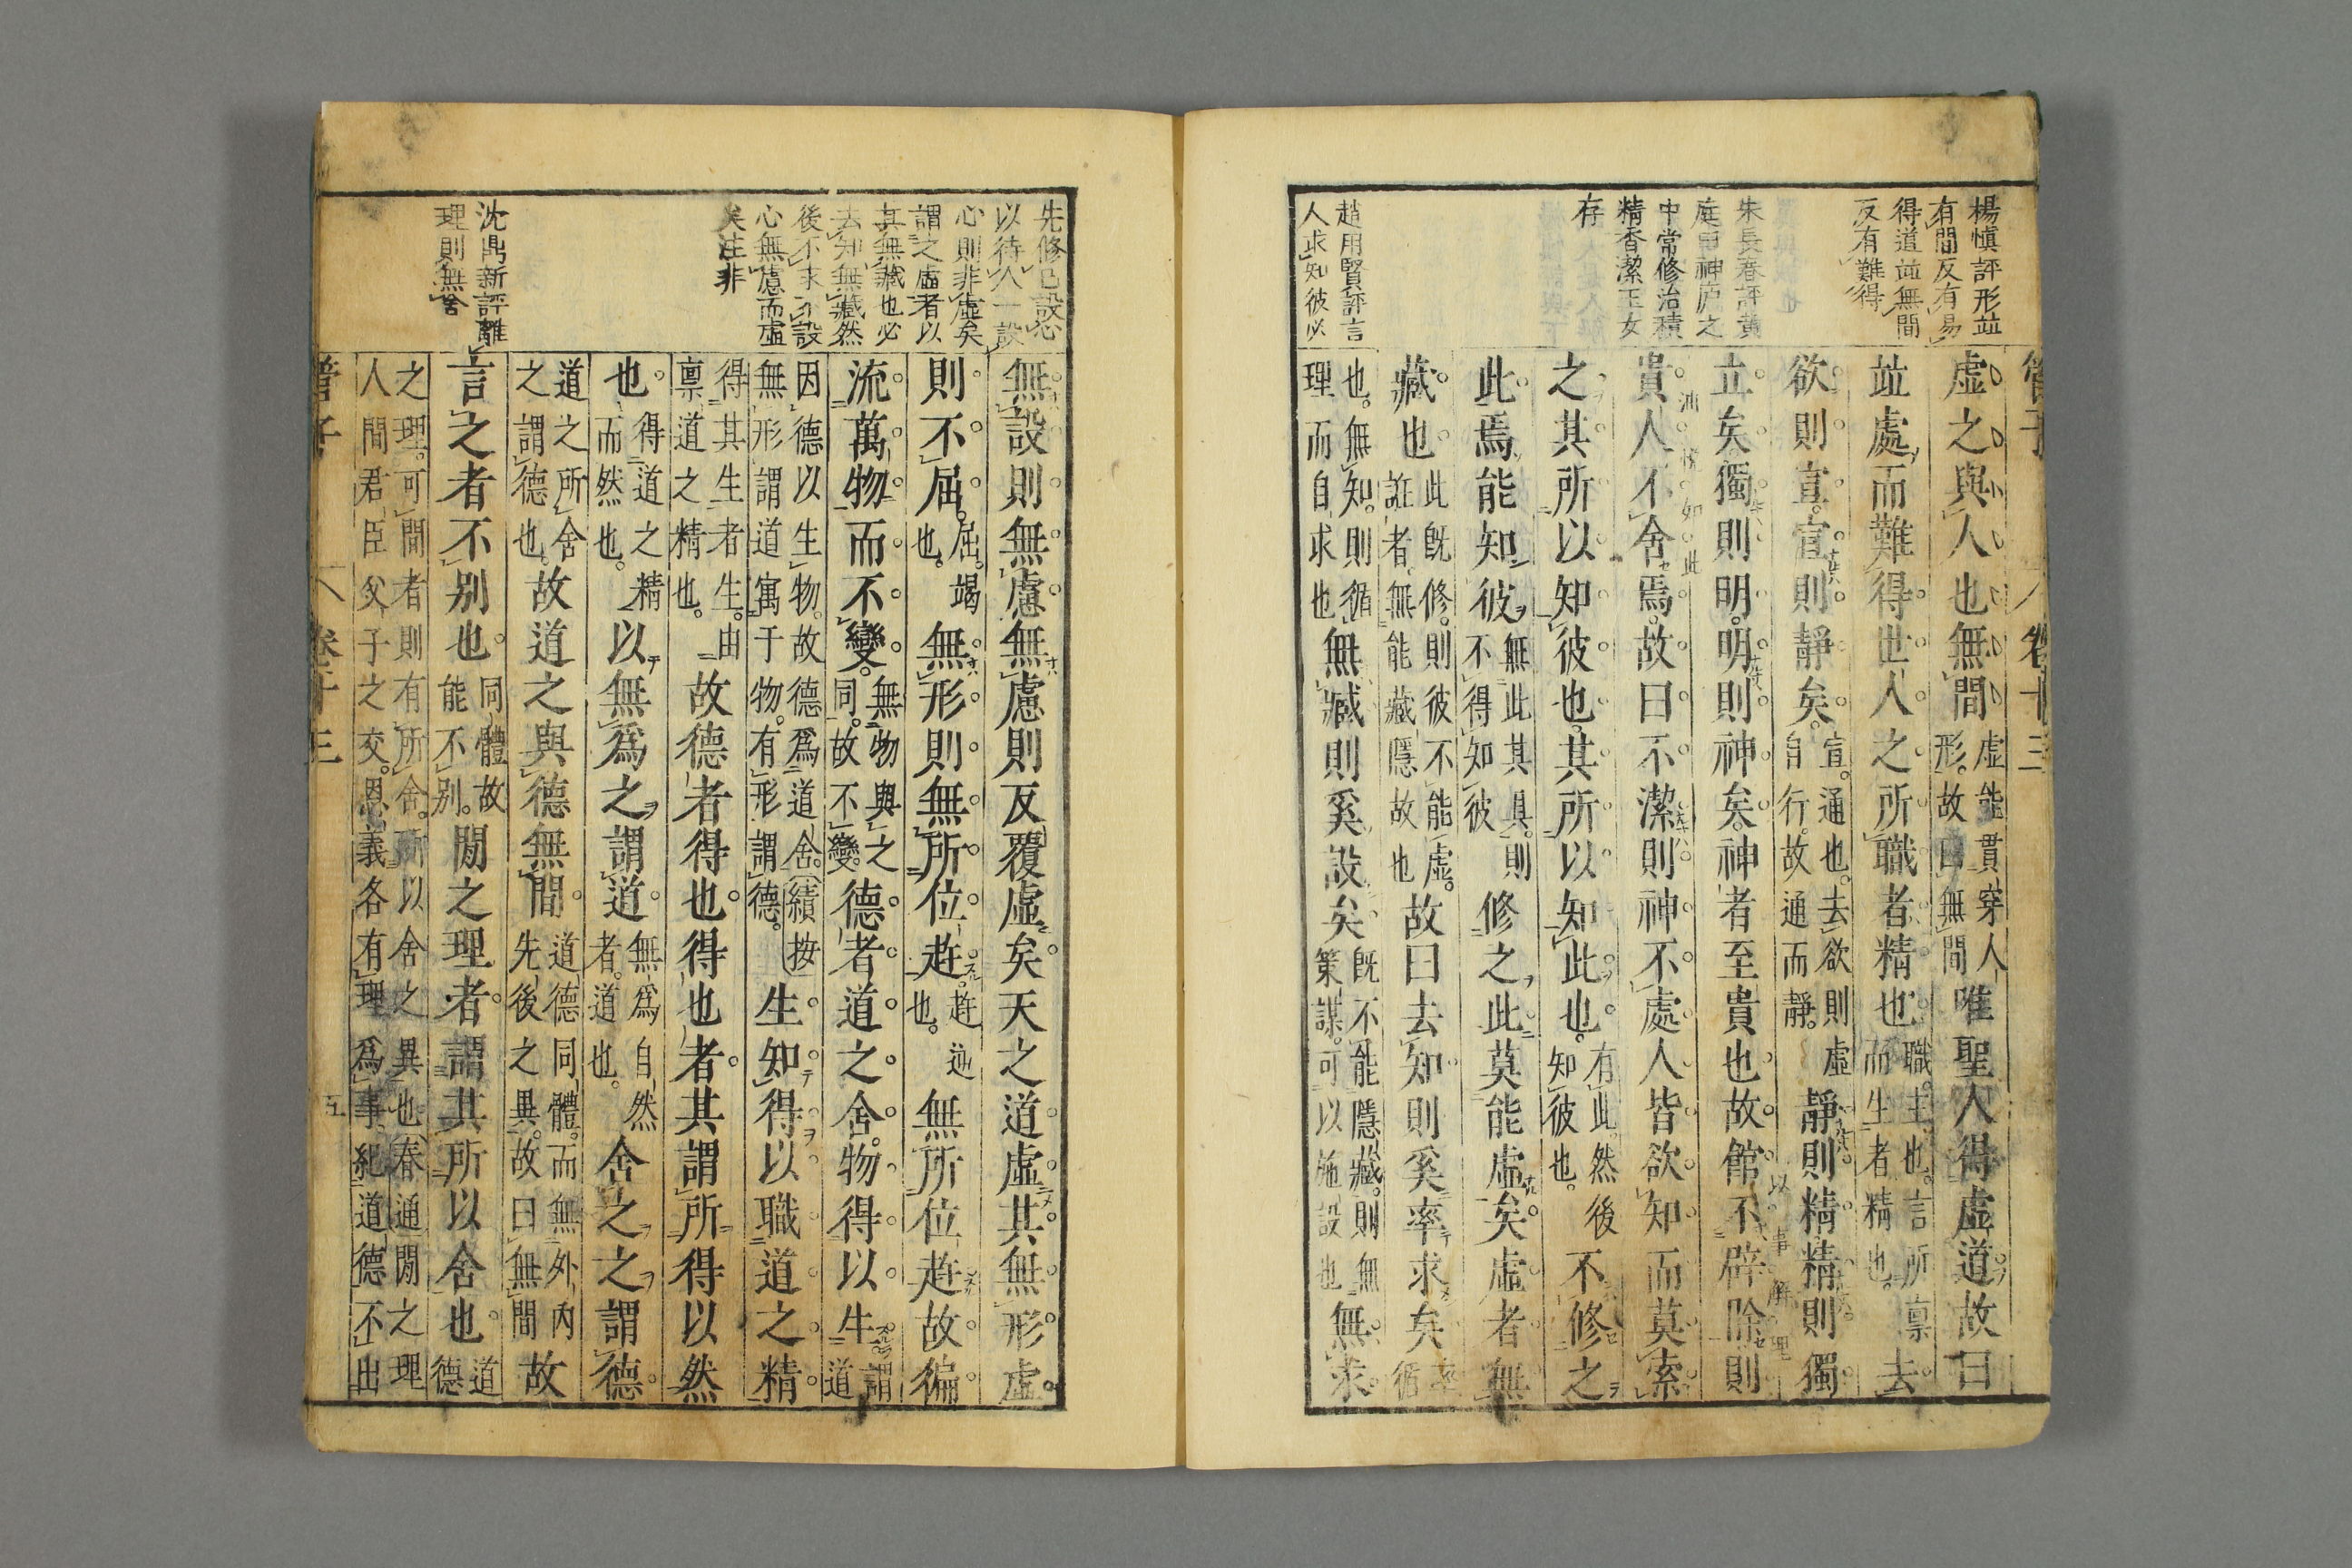 楊慎評形竝
有間反有易
得道竝無間
反有難得
朱長春評黄
庭曰神庐之
中常修治積
精香潔玉女
存
趙用賢評言
人求知彼必
管子 卷十三
虚之與人也無間虚能貫穿人形故曰無間唯聖人得虚道故曰
竝處而難得世人之所職者精也職主也言所禀而生者精也去
欲則宣宣則靜矣宣通也去欲則虚自行故通而靜靜則精精則獨
立矣獨則明明則神矣神者至貴也故館不辟除則
貴人不舍焉故曰不潔則神不處人皆欲知而莫索
之其所以知彼也其所以知此也有此然後知彼也不修之
此焉能知彼無此其具則不得知彼修之此莫能虚矣虚者無
藏也此既修則彼不能虚誑者無能藏隱故也故曰去知則奚率求矣率循
也無知則循理而自求也無臧則奚設矣既不能隱藏則無策謀可以施設也無求
先修己設心
以待人一設
心則非虚矣
謂之虚者以
其無藏也必
去知無藏然
後不求不設
心無慮而虚
矣注非
沈鼎新評離
理則無舍
無設則無慮無慮則反覆虚矣天之道虚其無形虚
則不屈屈竭也無形則無所位赾赾逆也無所位赾故徧
流萬物而不變無物與之同故不變德者道之舍物得以生謂道
因德以生物故德爲道舍績按無形謂道寓于物有形謂德生知得以職道之精
得其生者生由禀道之精也故德者得也得也者其謂所得以然
也得道之精而然也以無爲之謂道無爲自然者道也舍之之謂德
道之所舍之謂德也故道之與德無間道德同體而無外內先後之異故曰無間故
言之者不别也同體故能不别間之理者謂其所以舍也道德
之理可間者則有所舍所以舍之異也春通間之理人間君臣父子之交恩義各有理爲事紀道德不出
管子 卷十三 五